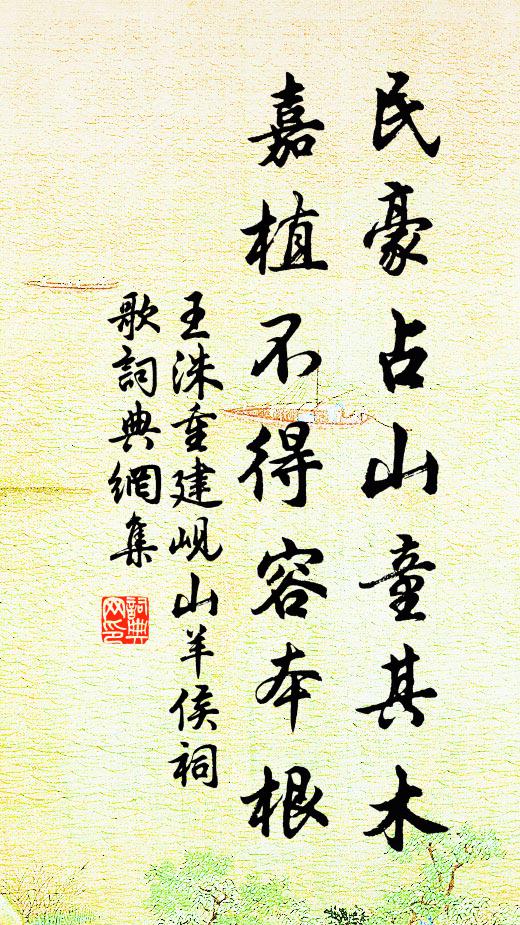 民豪占山童其木
嘉植不得容本根
王洙重建岘山羊侯祠
歌詞典網集
詞典
网印